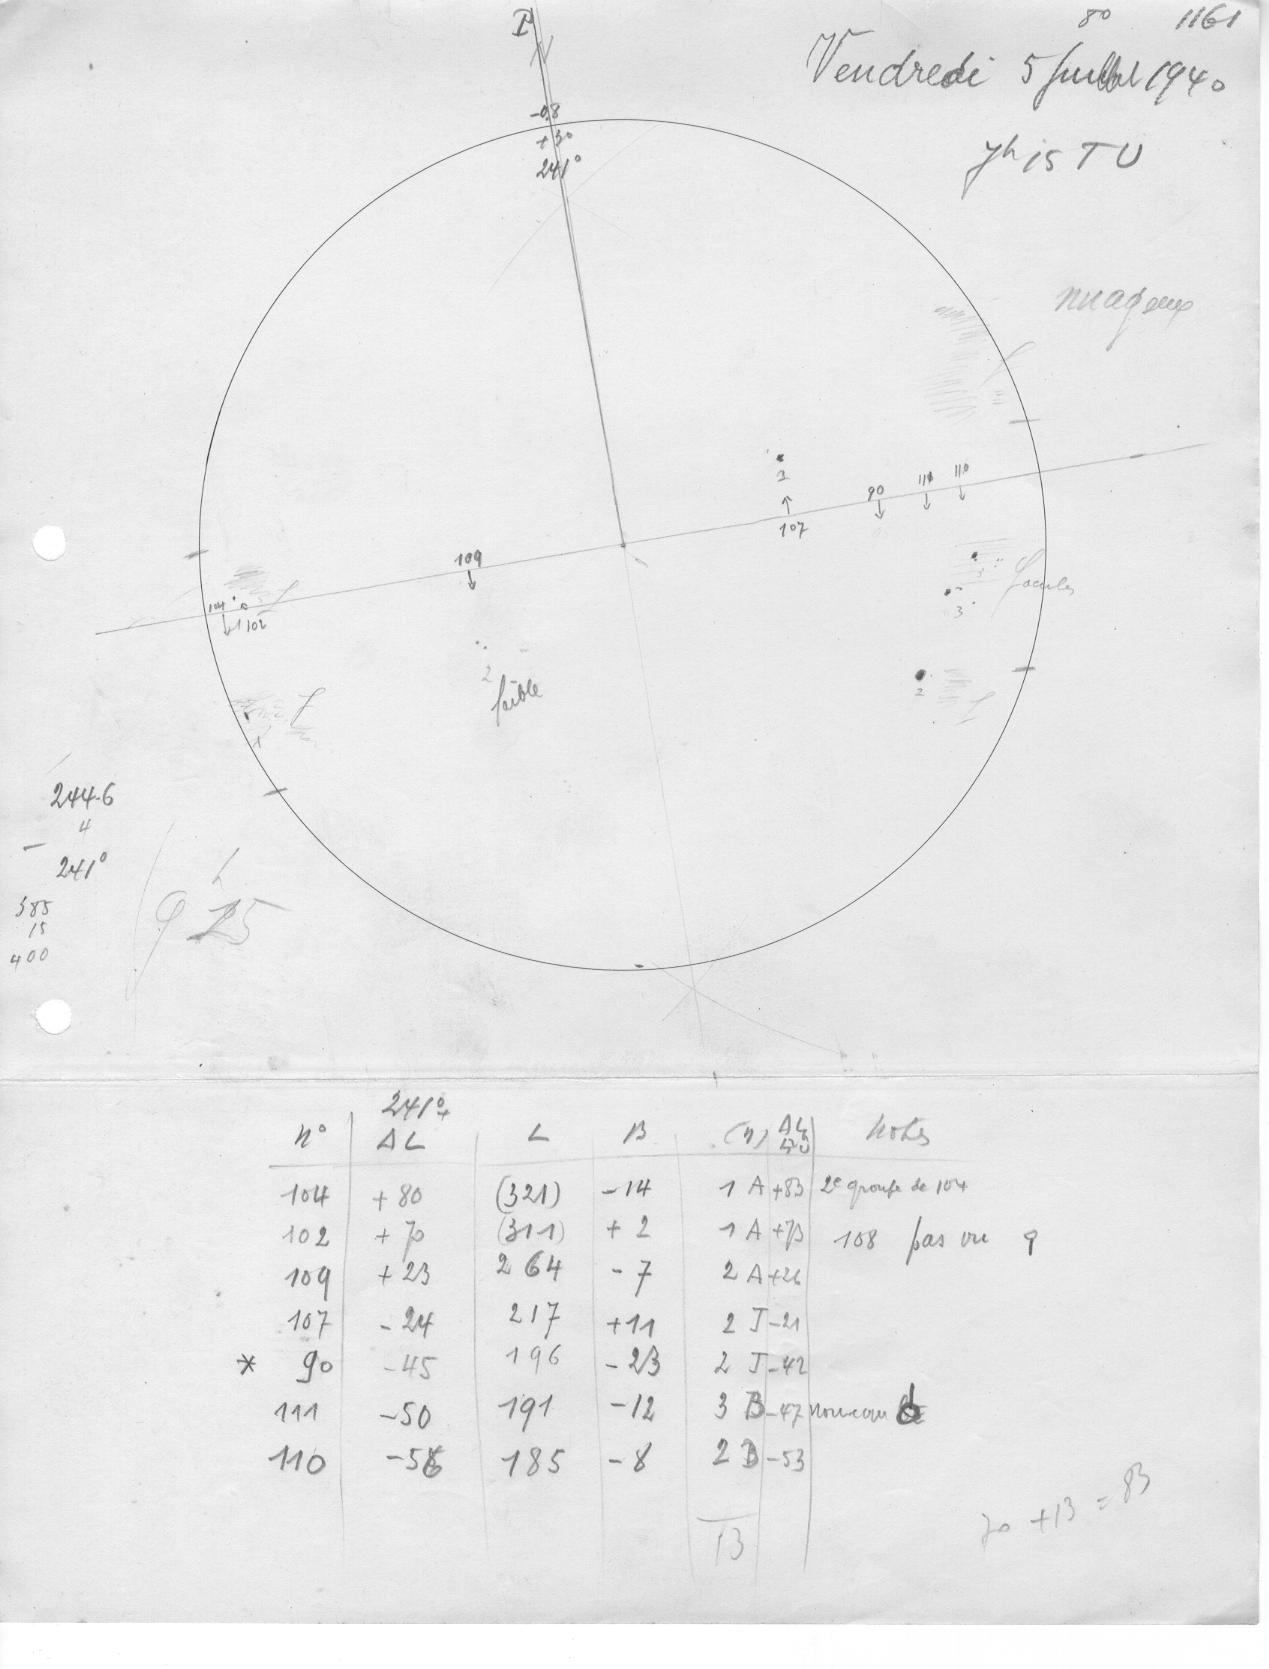 P
8° 1161
Vendredi 5 Juillet 1940
7h15 TU
-0,8
+3°
241°
nuageux
f
1
90 111 110
107
109
3
facules
3
104
1 102
f
2
faible
2
f
f
1
244.6
4
241°
385
15
400
241°+
n° ΔL L B (n) Notes
104 +80 (321) -14 1 A +83 2e groupe de 104
102 +70 (311) +2 1 A +73 108 pas vu ?
109 +23 264 -7 2 A +26
107 -24 217 +11 2 J -21
* 90 -45 196 -23 2 J -42
111 -50 191 -12 3 B -47 nouveau
110 -56 185 -8 2 B -53
13
70 +13 = 83